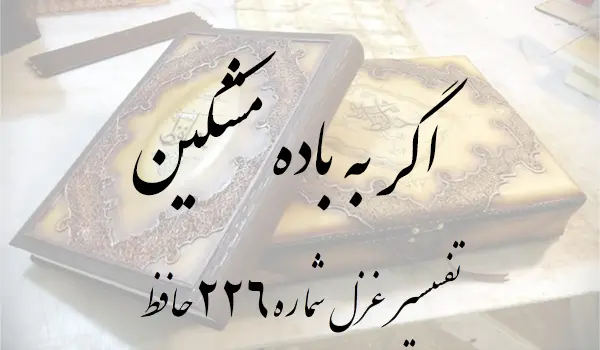 اگر به باده مشکین
تفسیر غزل شماره ۲۲۶ حافظ